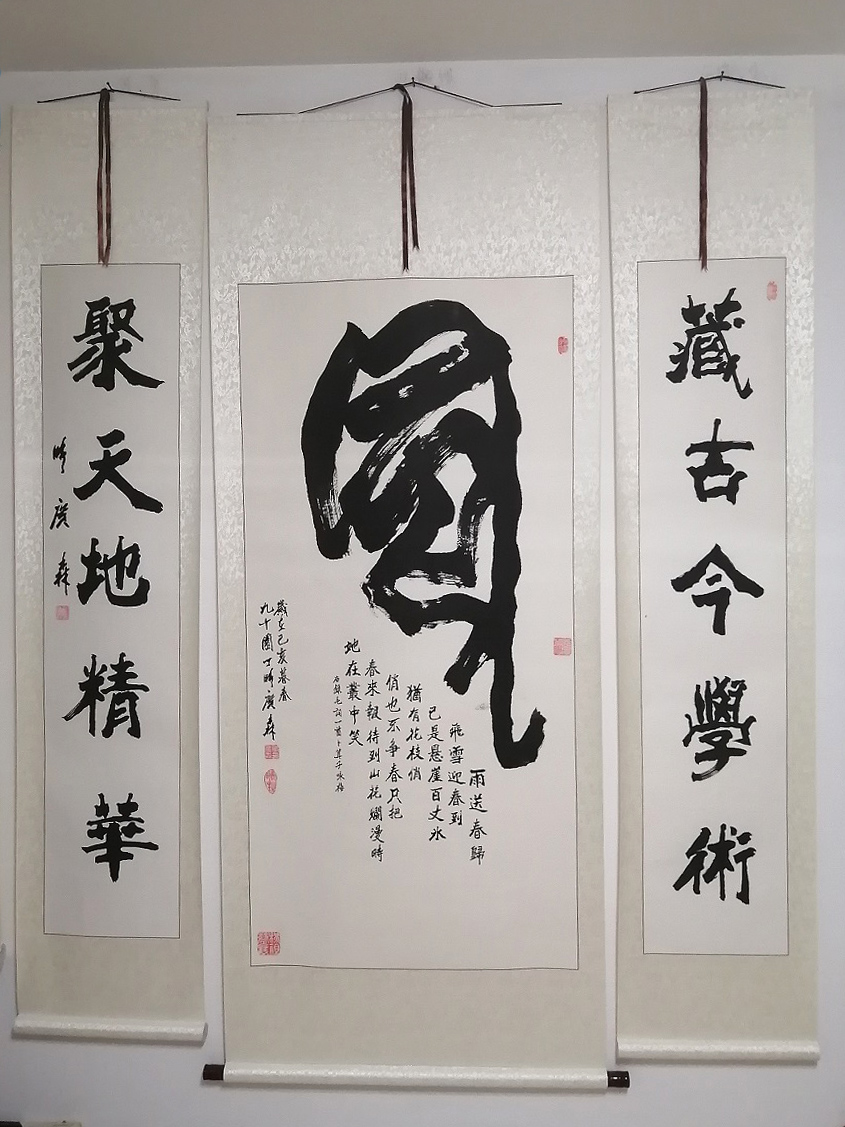 藏古今學術
風
雨送春歸
飛雪迎春到
已是懸崖百丈冰
猶有花枝俏
俏也不爭春只把
春來報待到山花爛漫時
地在叢中笑
右録毛詞一首卜算子咏梅
歲在己亥暮春
九十園丁時廣森
聚天地精華
時廣森